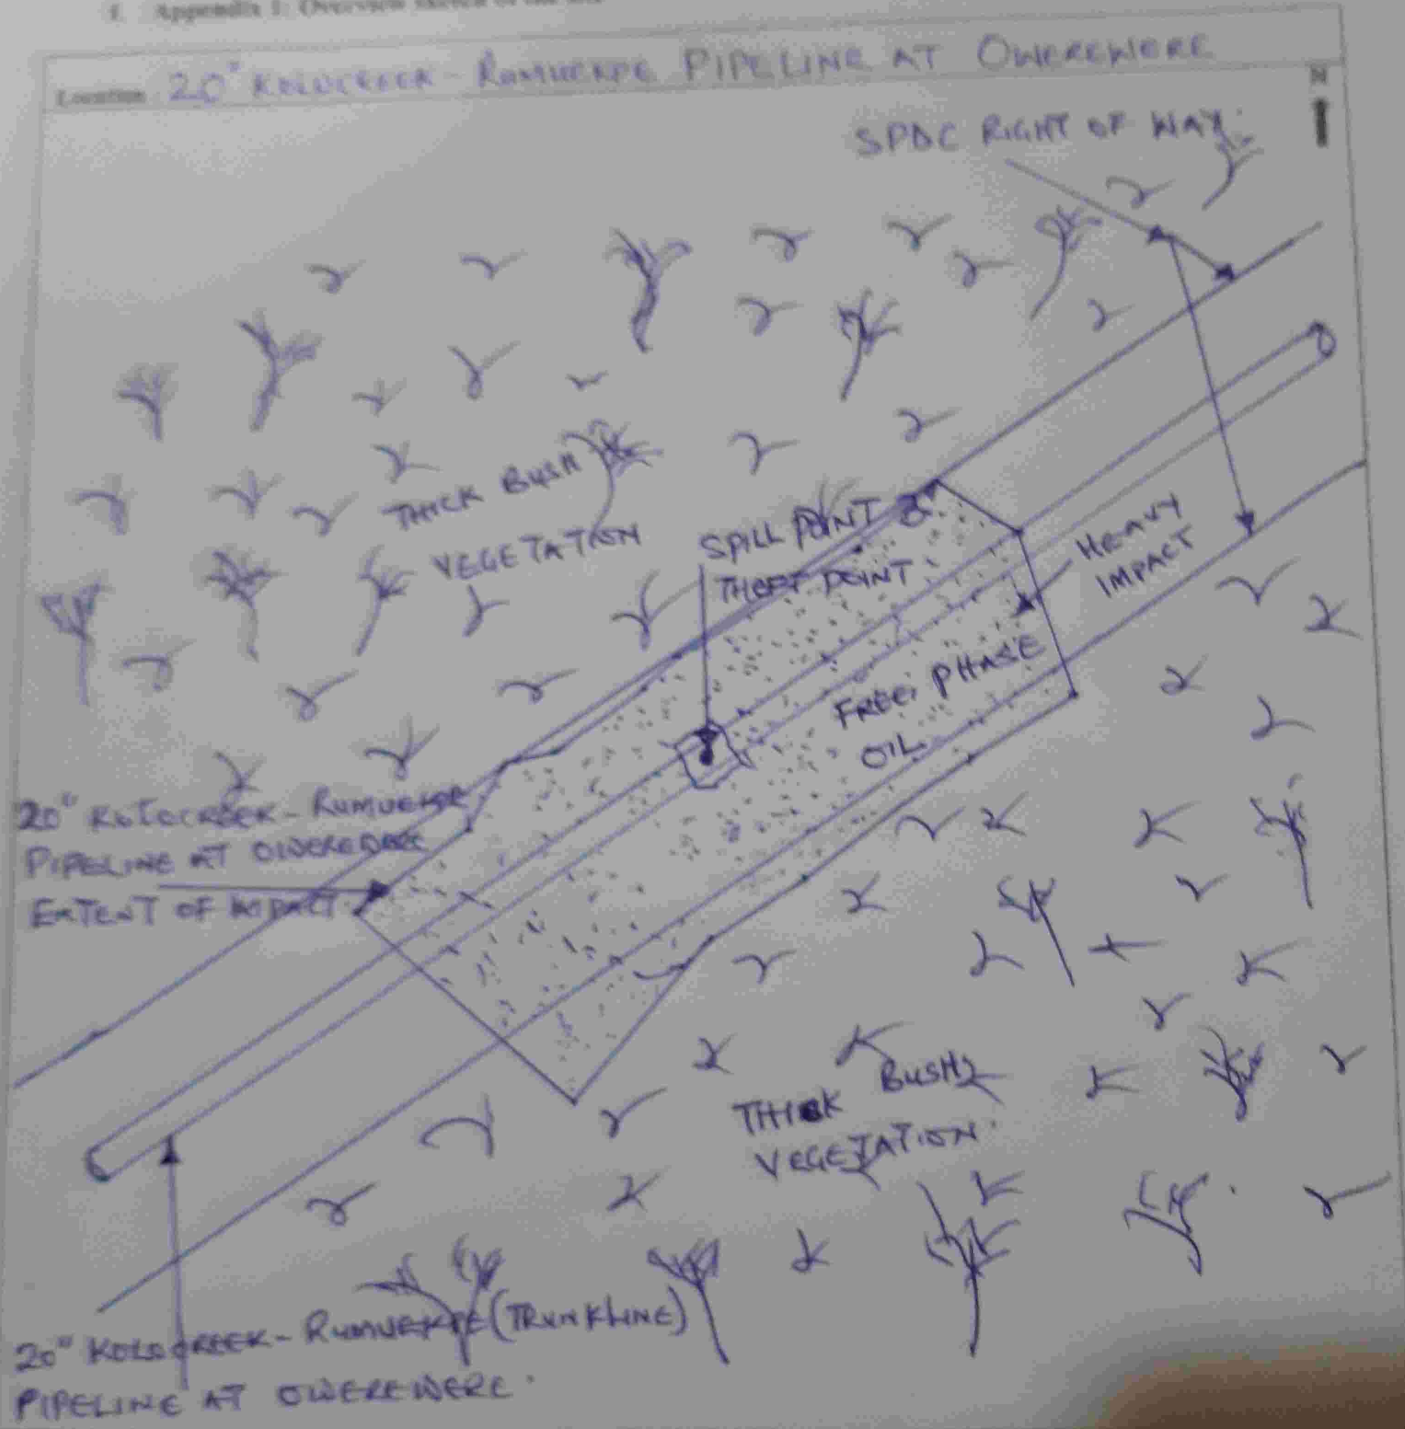 1. Appendix 1: Overview sketch of the
Location 20" KOLOCREEK - RUMUEKPE PIPELINE AT OWEREWERE
N
SPDC RIGHT OF WAY.
THICK BUSH
VEGETATION
SPILL POINT &
THEFT POINT
HEAVY
IMPACT
FREE PHASE
OIL
20" KOLOCREEK - RUMUEKPE
PIPELINE AT OWEREWERE
EXTENT OF IMPACT
THICK BUSH
VEGETATION.
20" KOLOCREEK - RUMUEKPE (TRUNKLINE)
PIPELINE AT OWEREWERE.